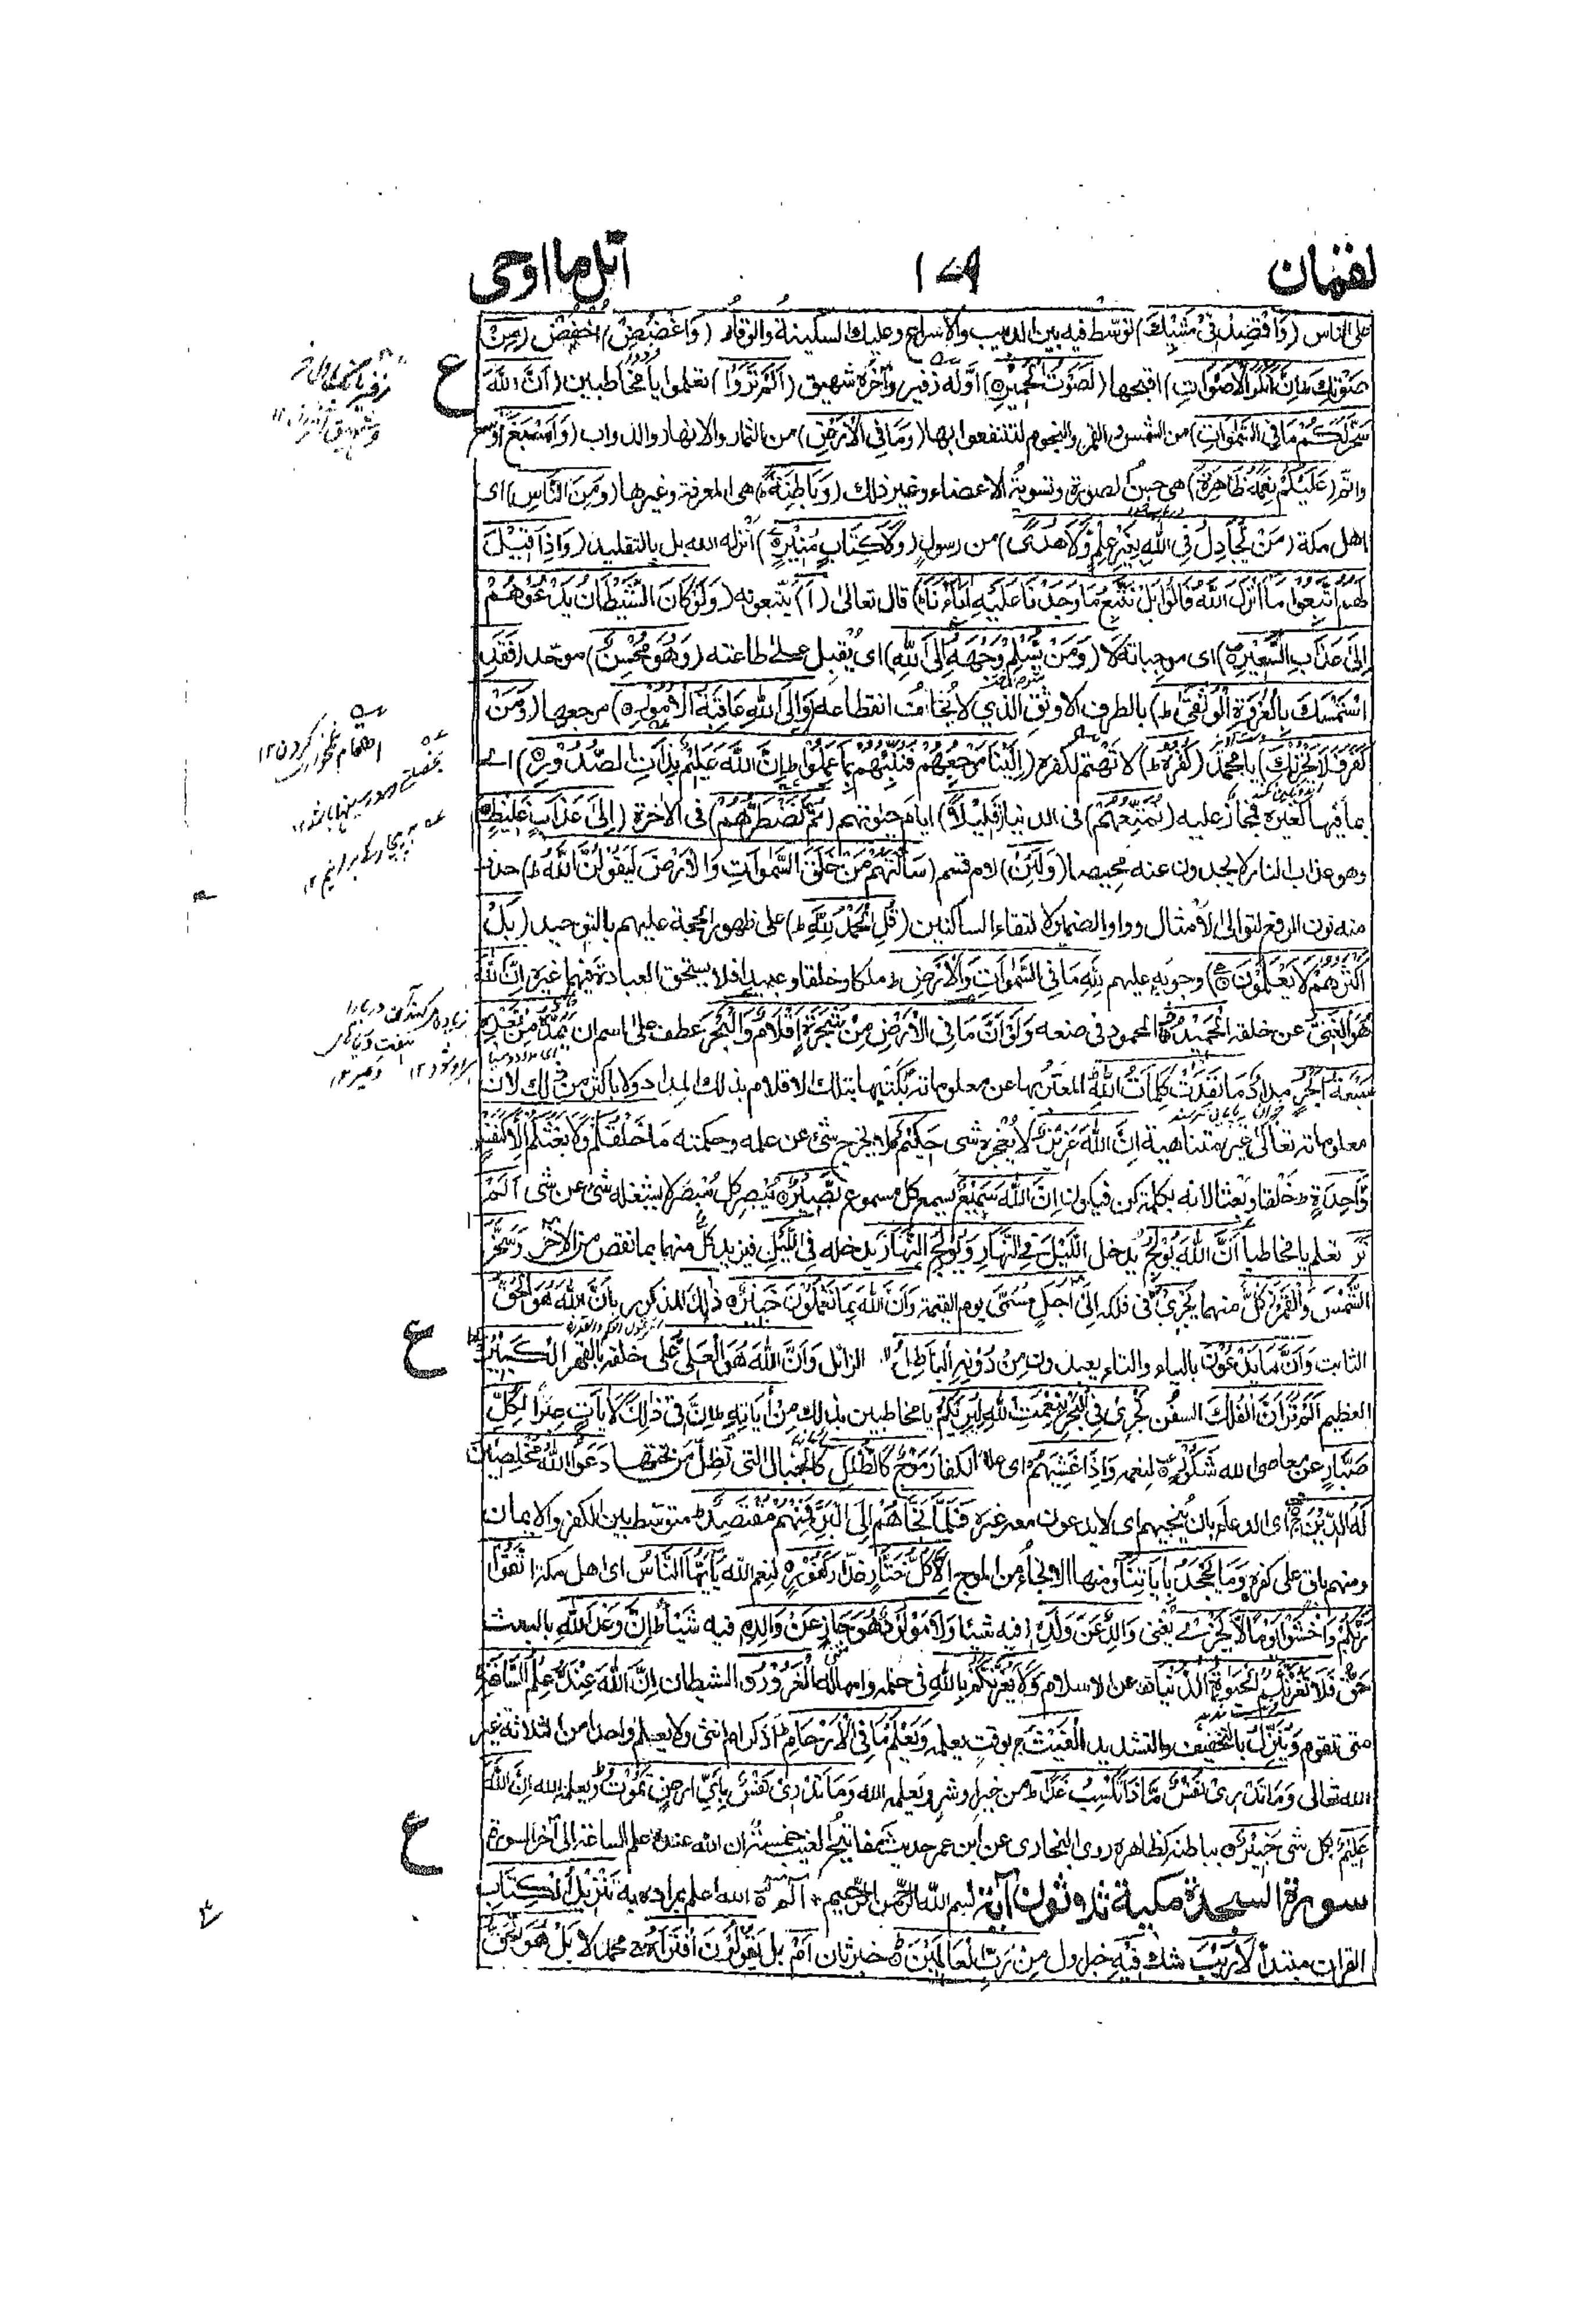 لقمان
١٧٩
اتل ما اوحی
على الناس (وَاقْصِدْ فِيْ مَشْيِكَ) توسّط فيه بين الدبيب والاسراع وعليك السكينةُ والوقار (وَاغْضُضْ) اخفض (مِنْ
صَوْتِكَ ط اِنَّ اَنْكَرَ الْاَصْوَاتِ) اقبحها (لَصَوْتُ الْحَمِيْرِ) اوّله زفير وآخره شهيق (اَلَمْ تَرَوْا) تعلموا يا مخاطبين (اَنَّ اللّٰهَ
سَخَّرَ لَكُمْ مَّا فِي السَّمٰوَاتِ) من الشمس والقمر والنجوم لتنتفعوا بها (وَمَا فِي الْاَرْضِ) من الثمار والانهار والدواب (وَاَسْبَغَ) اوسع
واتمّ (عَلَيْكُمْ نِعَمَهٗ ظَاهِرَةً) هى حسنُ الصورة وتسويةُ الاعضاء وغير ذلك (وَّبَاطِنَةً ط) هى المعرفة وغيرها (وَمِنَ النَّاسِ) اى
اهل مكة (مَنْ يُّجَادِلُ فِي اللّٰهِ بِغَيْرِ عِلْمٍ وَّلَا هُدًى) من رسول (وَّلَا كِتَابٍ مُّنِيْرٍ) انزله الله بل بالتقليد (وَاِذَا قِيْلَ
لَهُمُ اتَّبِعُوْا مَا اَنْزَلَ اللّٰهُ قَالُوْا بَلْ نَتَّبِعُ مَا وَجَدْنَا عَلَيْهِ اٰبَاءَنَا ط) قال تعالى (اَ) يتّبعونه (وَلَوْ كَانَ الشَّيْطَانُ يَدْعُوْهُمْ
اِلٰى عَذَابِ السَّعِيْرِ) اى موجباته لا (وَمَنْ يُّسْلِمْ وَجْهَهٗ اِلَى اللّٰهِ) اى يُقبل على طاعته (وَهُوَ مُحْسِنٌ) موحّد (فَقَدِ
اسْتَمْسَكَ بِالْعُرْوَةِ الْوُثْقٰى ط) بالطرف الاوثق الذي لا يُخاف انقطاعه (وَاِلَى اللّٰهِ عَاقِبَةُ الْاُمُوْرِ) مرجعها (وَمَنْ
كَفَرَ فَلَا يَحْزُنْكَ) يا محمد (كُفْرُهٗ ط) لا تهتم لكفره (اِلَيْنَا مَرْجِعُهُمْ فَنُنَبِّئُهُمْ بِمَا عَمِلُوْا ط اِنَّ اللّٰهَ عَلِيْمٌ بِذَاتِ الصُّدُوْرِ) اے
بما فيها كغيره فمجاز عليه (نُمَتِّعُهُمْ) فى الدنيا (قَلِيْلًا) ايام حيٰوتهم (ثُمَّ نَضْطَرُّهُمْ) فى الاخرة (اِلٰى عَذَابٍ غَلِيْظٍ)
وهو عذاب النار لا يجدون عنه محيصا (وَلَئِنْ) لام قسم (سَاَلْتَهُمْ مَّنْ خَلَقَ السَّمٰوَاتِ وَالْاَرْضَ لَيَقُوْلُنَّ اللّٰهُ ط) حذف
منه نون الرفع لتوالى الامثال وواو الضمير لالتقاء الساكنين (قُلِ الْحَمْدُ لِلّٰهِ ط) على ظهور الحجة عليهم بالتوحيد (بَلْ
اَكْثَرُهُمْ لَا يَعْلَمُوْنَ) وجوبه عليهم لِلّٰهِ مَا فِي السَّمٰوَاتِ وَالْاَرْضِ ط ملكا وخلقا وعبيدا فلا يستحق العبادة فيهما غيره اِنَّ اللّٰهَ
هُوَ الْغَنِيُّ عن خلقه الْحَمِيْدُ المحمود فى صنعه وَلَوْ اَنَّ مَا فِي الْاَرْضِ مِنْ شَجَرَةٍ اَقْلَامٌ وَّالْبَحْرَ عطف على اسم ان يَمُدُّهٗ مِنْ بَعْدِهٖ
سَبْعَةُ اَبْحُرٍ مدادا مَّا نَفِدَتْ كَلِمَاتُ اللّٰهِ المعبّر بها عن معلوماته بكَتْبها بتلك الاقلام بذلك المداد ولا باكثر من ذلك لان
معلوماته تعالى غير متناهية اِنَّ اللّٰهَ عَزِيْزٌ لا يُعجزه شى حَكِيْمٌ لا يخرج شئ عن علمه وحكمته مَا خَلْقُكُمْ وَلَا بَعْثُكُمْ اِلَّا كَنَفْسٍ
وَّاحِدَةٍ ط خلقا وبعثا لانه بكلمة كن فيكون اِنَّ اللّٰهَ سَمِيْعٌ يسمع كل مسموع بَصِيْرٌ يُبصر كل مُبصَر لا يشغله شئ عن شى اَلَمْ
تَرَ تعلم يا مخاطبا اَنَّ اللّٰهَ يُوْلِجُ يدخل اللَّيْلَ فِي النَّهَارِ وَيُوْلِجُ النَّهَارَ يدخله فِي اللَّيْلِ فيزيد كلٌّ منهما بما نقص من الاخر وَسَخَّرَ
الشَّمْسَ وَالْقَمَرَ كُلٌّ منهما يَجْرِيْ فى فلكه اِلٰى اَجَلٍ مُّسَمًّى يوم القيمة وَاَنَّ اللّٰهَ بِمَا تَعْمَلُوْنَ خَبِيْرٌ ذٰلِكَ المذكور بِاَنَّ اللّٰهَ هُوَ الْحَقُّ
الثابت وَاَنَّ مَا يَدْعُوْنَ بالياء والتاء يعبدون مِنْ دُوْنِهِ الْبَاطِلُ الزائل وَاَنَّ اللّٰهَ هُوَ الْعَلِيُّ على خلقه بالقهر الْكَبِيْرُ
العظيم اَلَمْ تَرَ اَنَّ الْفُلْكَ السفن تَجْرِيْ فِي الْبَحْرِ بِنِعْمَتِ اللّٰهِ لِيُرِيَكُمْ يا مخاطبين بذلك مِنْ اٰيَاتِهٖ ط اِنَّ فِيْ ذٰلِكَ لَاٰيَاتٍ عبرا لِّكُلِّ
صَبَّارٍ عن معاصى الله شَكُوْرٍ لنعمه وَاِذَا غَشِيَهُمْ اى علا الكفار مَّوْجٌ كَالظُّلَلِ كالجبال التى تُظِلّ من تحتها دَعَوُا اللّٰهَ مُخْلِصِيْنَ
لَهُ الدِّيْنَ اى الدعاء بان ينجيهم اى لا يدعون معه غيره فَلَمَّا نَجَّاهُمْ اِلَى الْبَرِّ فَمِنْهُمْ مُّقْتَصِدٌ متوسّط بين الكفر والايمان
ومنهم باق على كفره وَمَا يَجْحَدُ بِاٰيَاتِنَا ومنها الانجاء من الموج اِلَّا كُلُّ خَتَّارٍ غدّار كَفُوْرٍ لنعم الله يٰاَيُّهَا النَّاسُ اى اهل مكة اتَّقُوْا
رَبَّكُمْ وَاخْشَوْا يَوْمًا لَّا يَجْزِيْ يُغنى وَالِدٌ عَنْ وَّلَدِهٖ فيه شيئا وَلَا مَوْلُوْدٌ هُوَ جَازٍ عَنْ وَّالِدِهٖ فيه شَيْئًا ط اِنَّ وَعْدَ اللّٰهِ بالبعث
حَقٌّ فَلَا تَغُرَّنَّكُمُ الْحَيٰوةُ الدُّنْيَا عن الاسلام وَلَا يَغُرَّنَّكُمْ بِاللّٰهِ فى حلمه وامهاله الْغَرُوْرُ الشيطان اِنَّ اللّٰهَ عِنْدَهٗ عِلْمُ السَّاعَةِ
متى تقوم وَيُنَزِّلُ بالتخفيف والتشديد الْغَيْثَ ج بوقت يعلمه وَيَعْلَمُ مَا فِي الْاَرْحَامِ ط اذكر ام انثى ولا يعلم واحدا من الثلاثة غير
الله تعالى وَمَا تَدْرِيْ نَفْسٌ مَّاذَا تَكْسِبُ غَدًا ط من خير او شر ويعلمه الله وَمَا تَدْرِيْ نَفْسٌ بِاَيِّ اَرْضٍ تَمُوْتُ ط ويعلمه الله اِنَّ اللّٰهَ
عَلِيْمٌ بكل شى خَبِيْرٌ بباطنه كظاهره روى البخارى عن ابن عمر حديث مفاتيح الغيب خمسة ان الله عنده علم الساعة الى آخر السورة
سورة السجدة مكية ثلاثون آية بسم الله الرحمن الرحيم الٓمٓ الله اعلم بمراده به تَنْزِيْلُ الْكِتَابِ
القرآن مبتدأ لَا رَيْبَ شك فِيْهِ خبر اول مِنْ رَّبِّ الْعَالَمِيْنَ خبر ثان اَمْ بل يَقُوْلُوْنَ افْتَرَاهُ محمد لا بَلْ هُوَ الْحَقُّ
ع
ع
ع